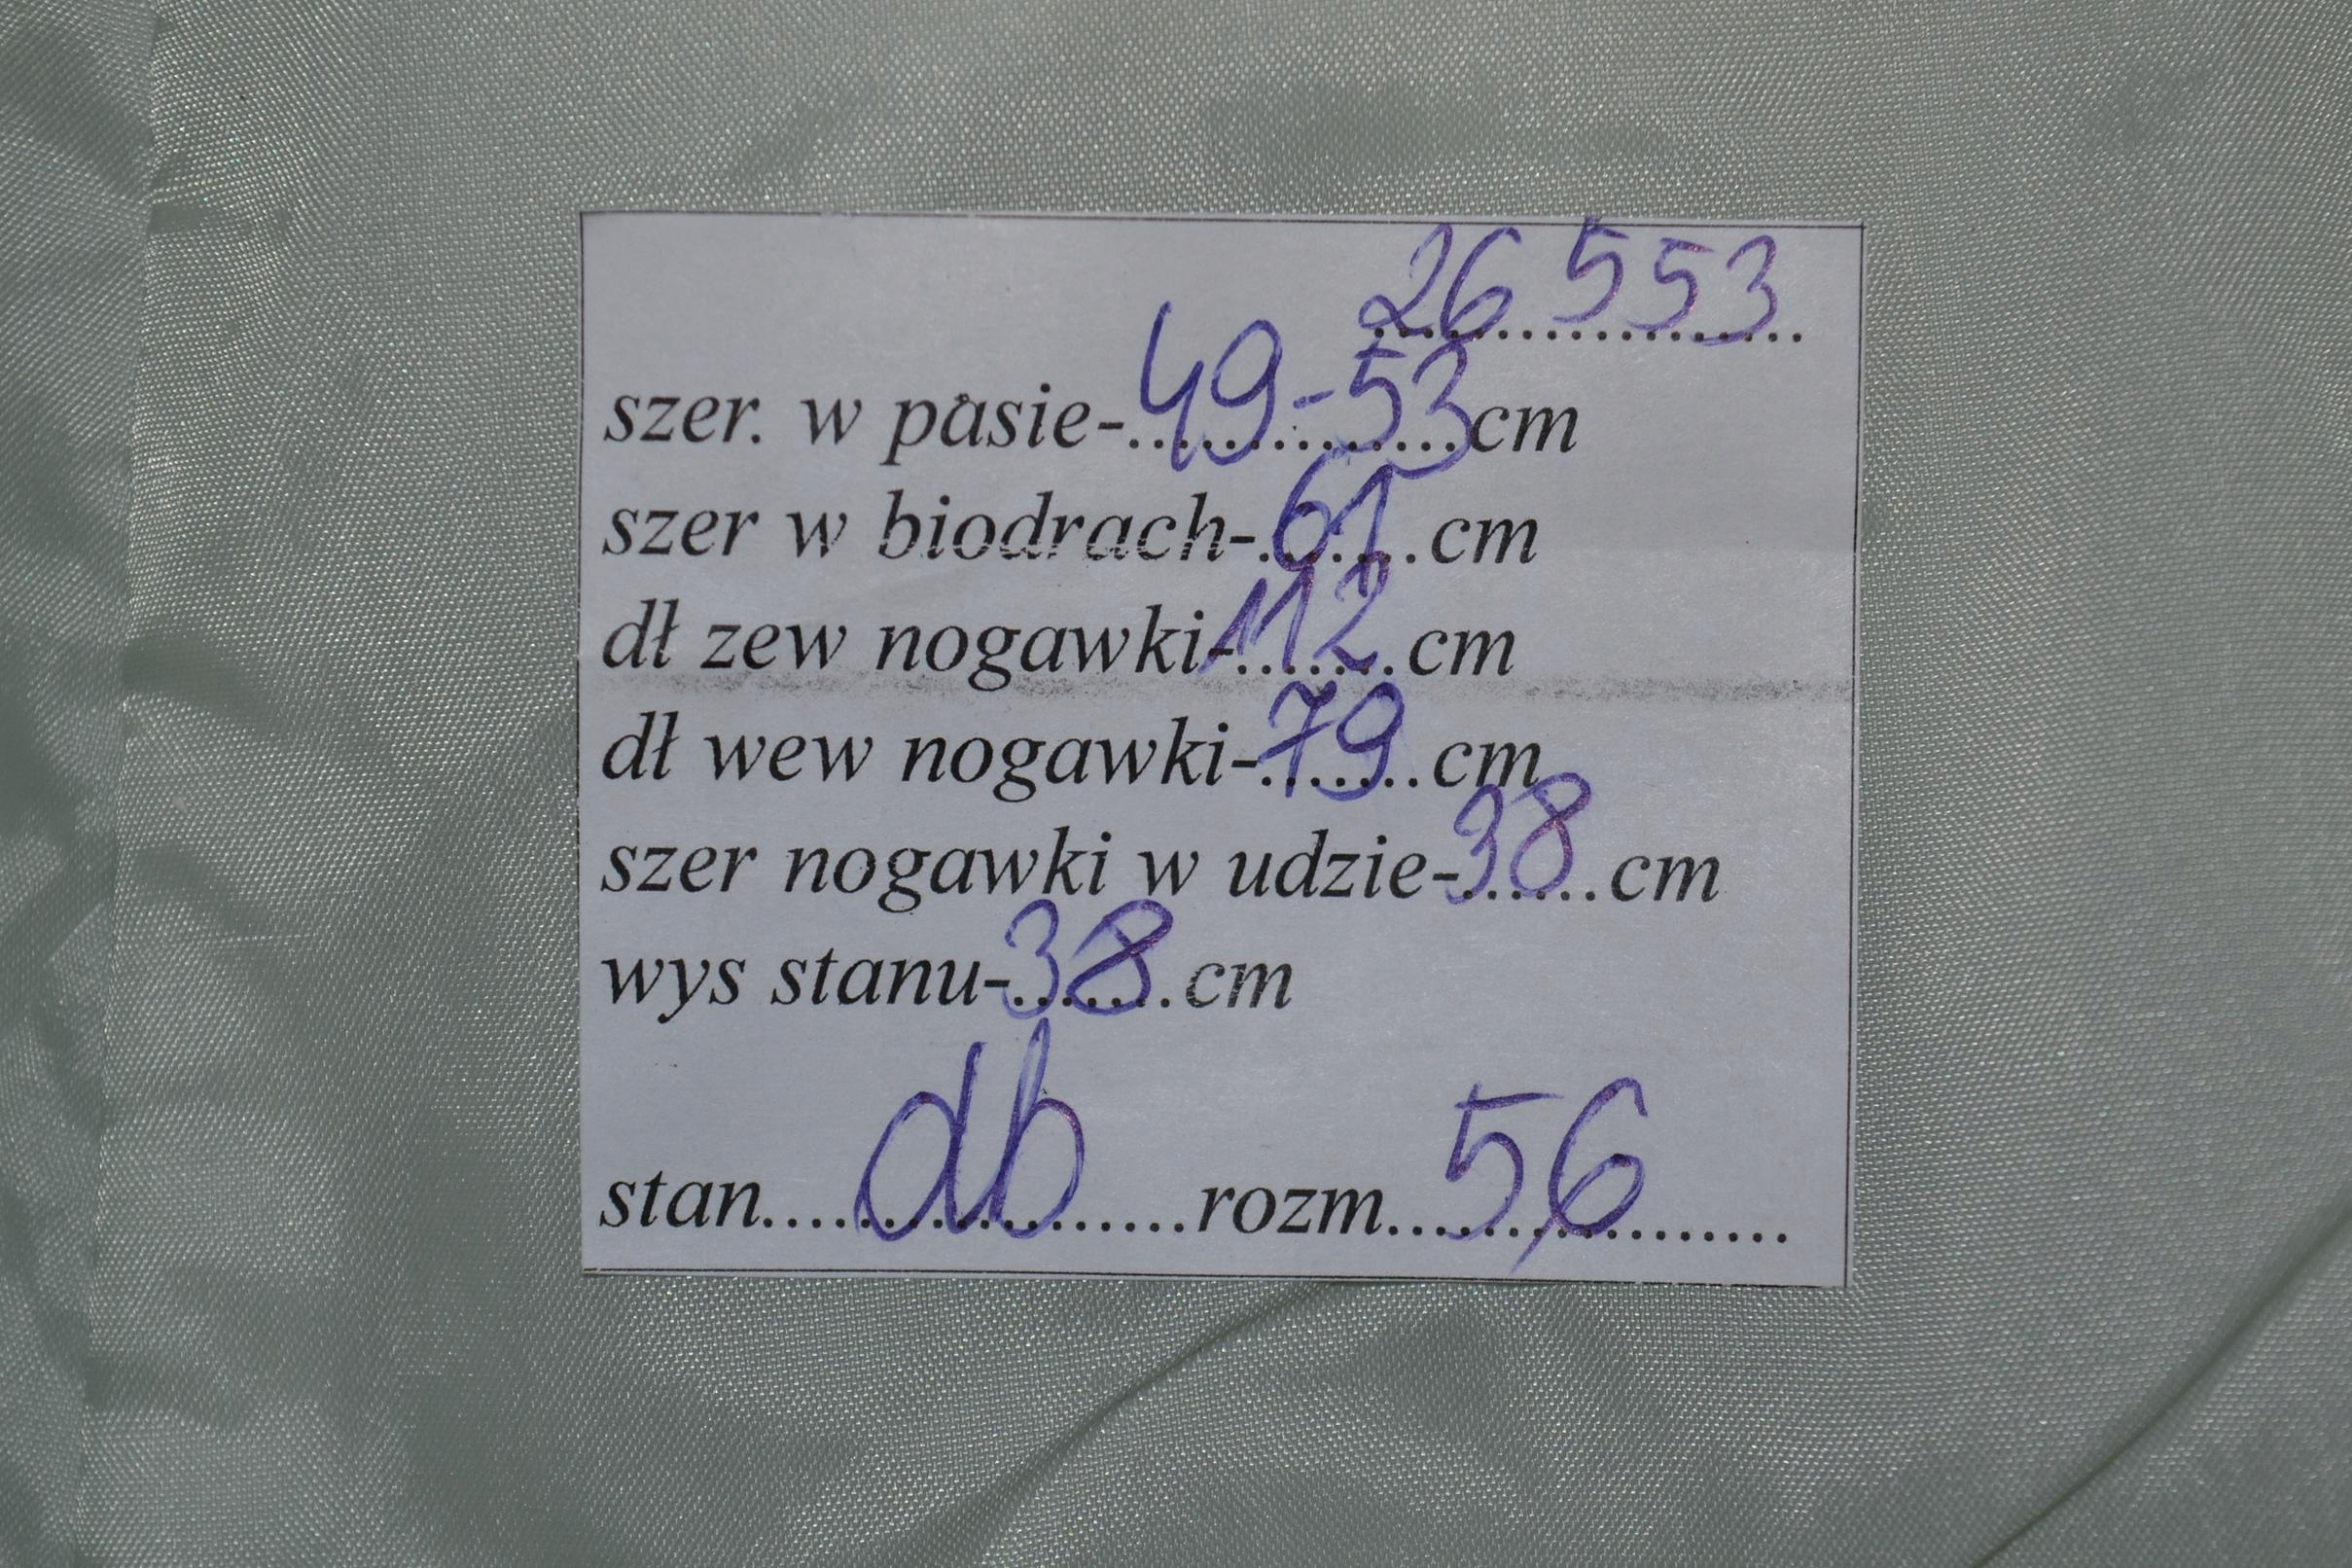 26 553
szer. w pasie-49-53cm
szer w biodrach-61cm
dł zew nogawki-112cm
dł wew nogawki-79cm
szer nogawki w udzie-38cm
wys stanu-38cm
stan....db....rozm....56....